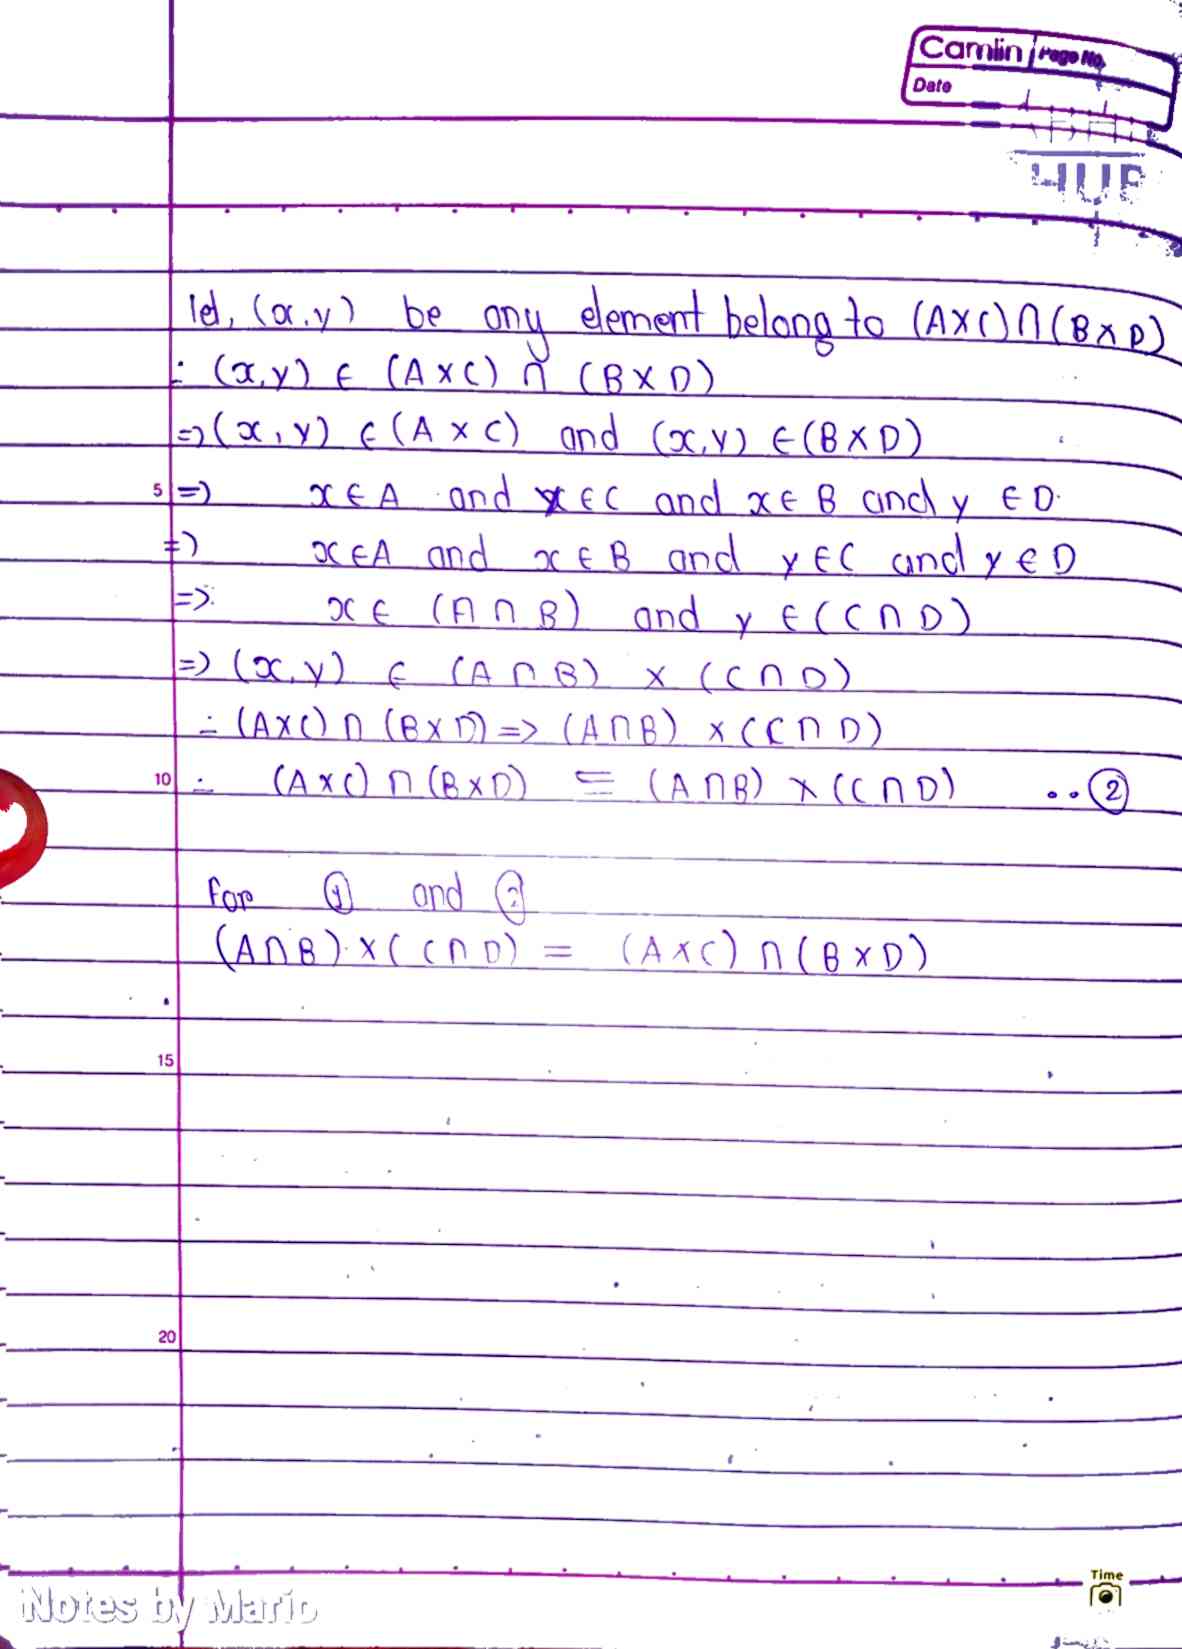 Camlin Page No.
Date
HUB
let, (x,y) be any element belong to (A×C)∩(B×D)
∴ (x,y) ∈ (A×C) ∩ (B×D)
=> (x,y) ∈ (A×C) and (x,y) ∈ (B×D)
5 => x∈A and y∈C and x∈B and y∈D
=> x∈A and x∈B and y∈C and y∈D
=> x∈ (A∩B) and y ∈ (C∩D)
=> (x,y) ∈ (A∩B) × (C∩D)
∴ (A×C)∩(B×D) => (A∩B) × (C∩D)
10 ∴ (A×C)∩(B×D) ⊆ (A∩B) × (C∩D) ..②
for ① and ②
(A∩B)×(C∩D) = (A×C)∩(B×D)
15
20
Time
Notes by Mario